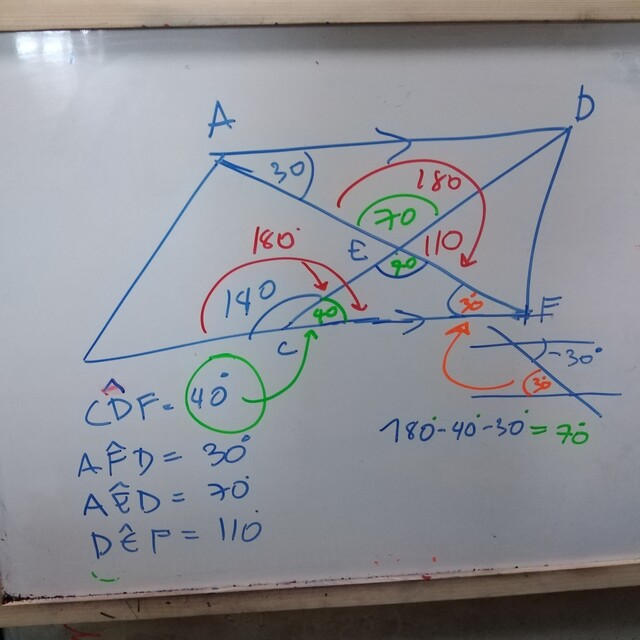 A
D
30
180
70
E
110
180°
140
40
30°
F
C
-30°
30
CD̂F = 40°
180°-40°-30°=70°
AF̂D = 30°
AÊD = 70°
DÊF = 110°